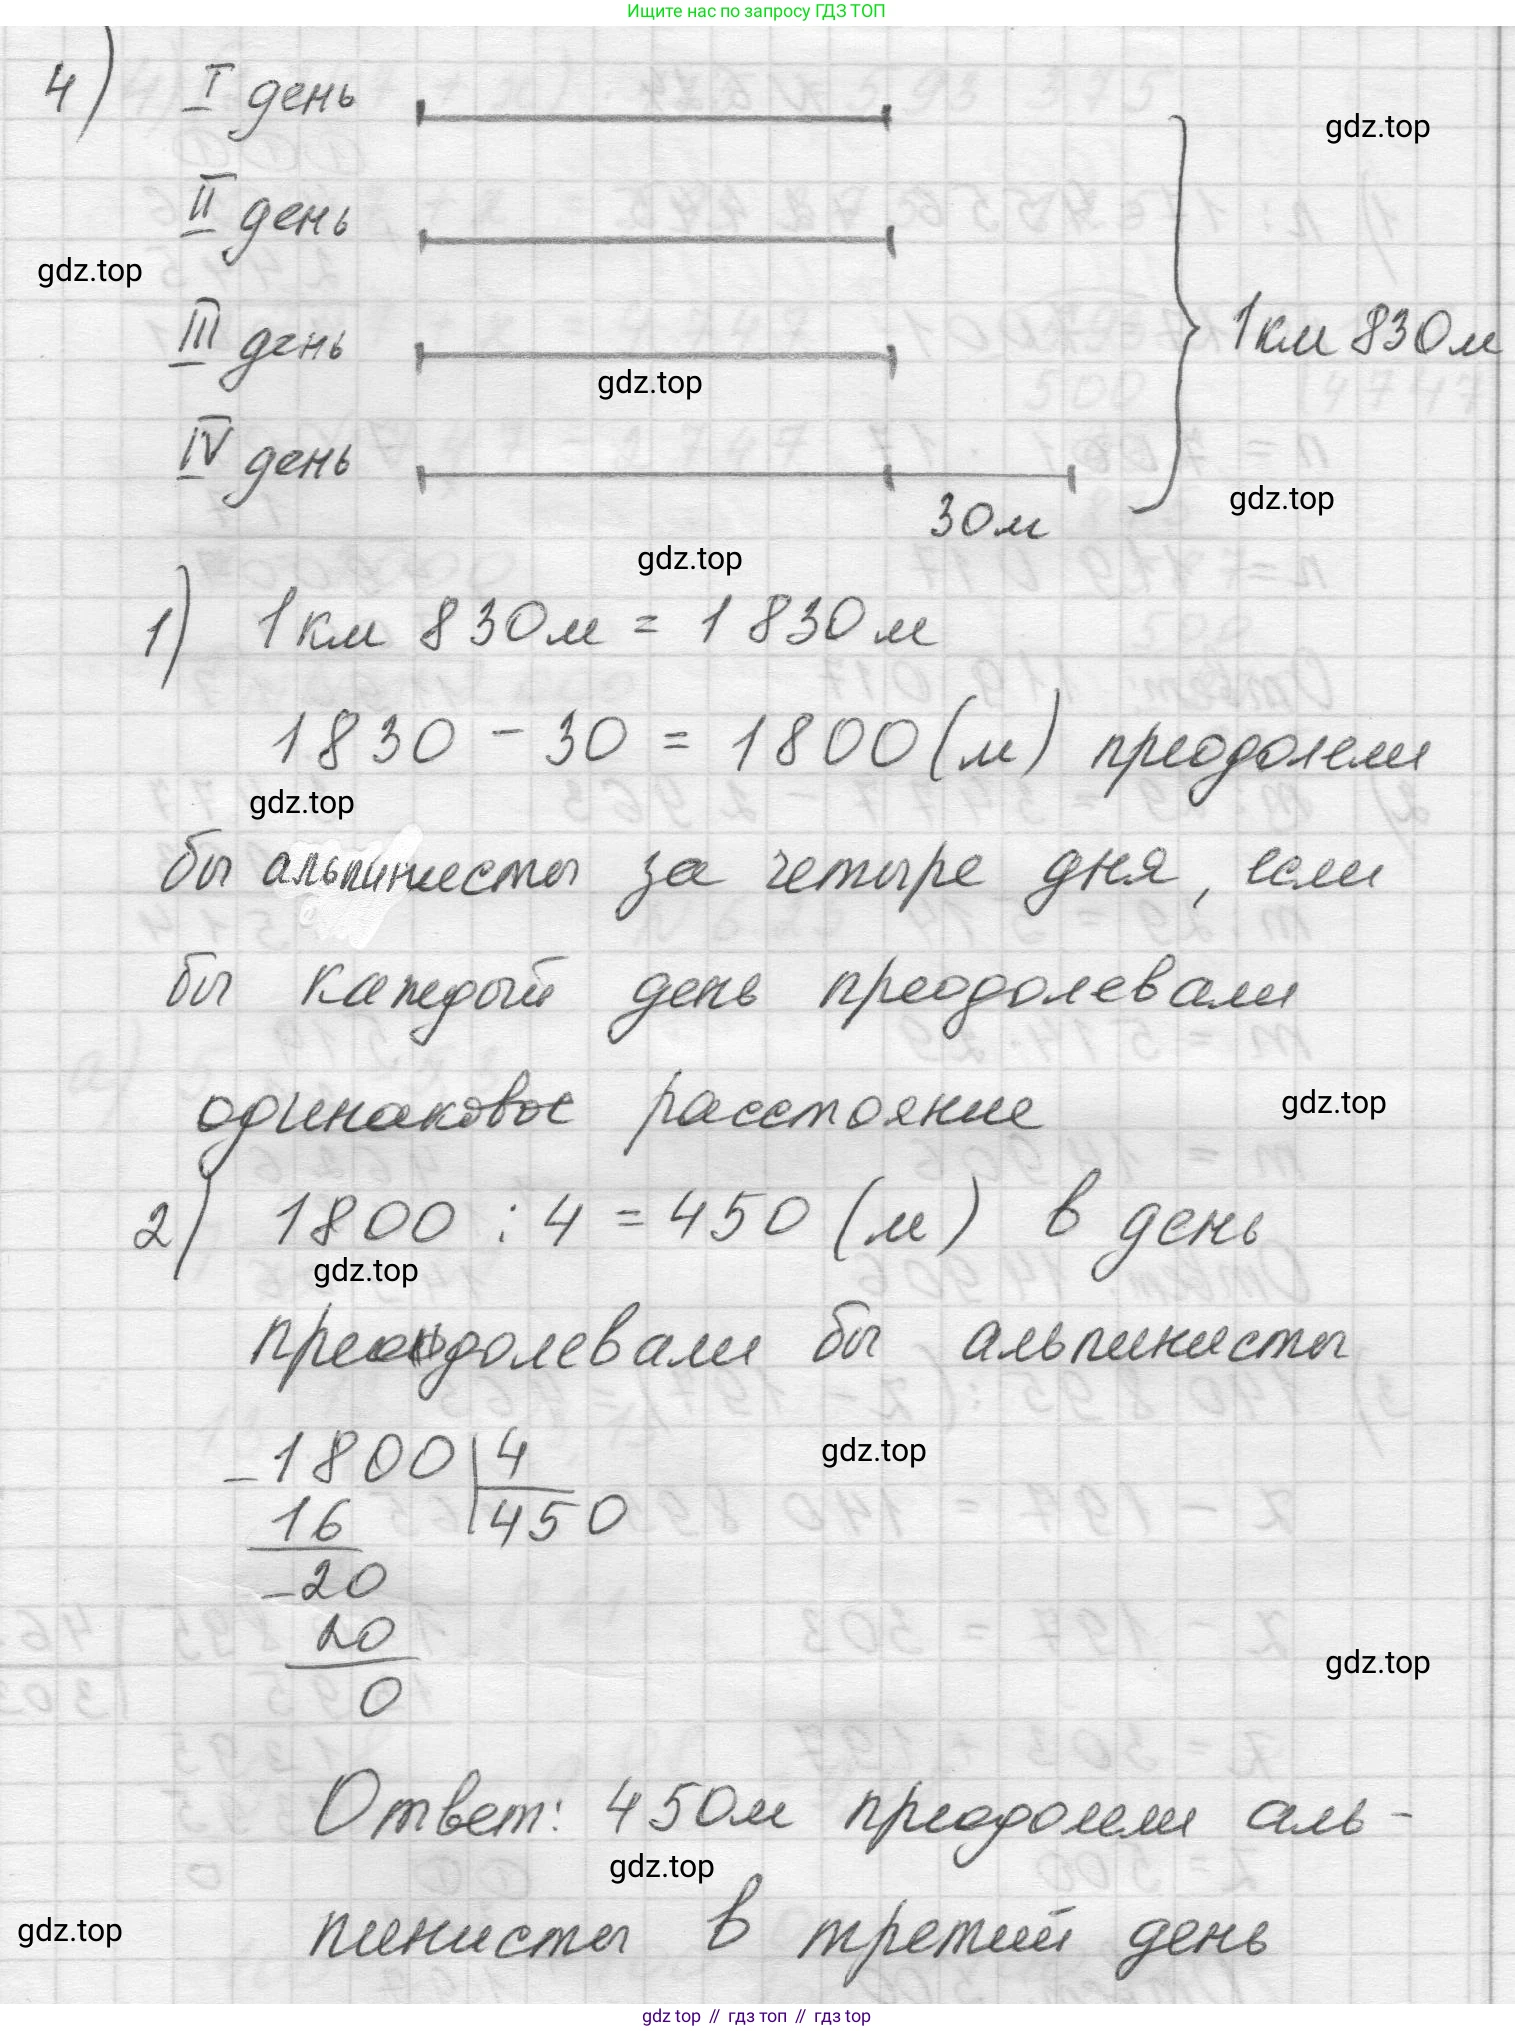 Ищите нас по запросу ГДЗ ТОП
4) I день
gdz.top
II день
gdz.top
III день
1 км 830 м
gdz.top
IV день
gdz.top
30 м
gdz.top
1) 1 км 830 м = 1 830 м
1830 - 30 = 1800 (м) преодолели
gdz.top
бы альпинисты за четыре дня, если
бы каждый день преодолевали
одинаковое расстояние
gdz.top
2) 1800 : 4 = 450 (м) в день
gdz.top
преодолевали бы альпинисты
gdz.top
- 1800 | 4
16 450
- 20
20
gdz.top
0
Ответ: 450 м преодолели аль-
gdz.top
пинисты в третий день
gdz.top
gdz top // гдз топ // gdz top